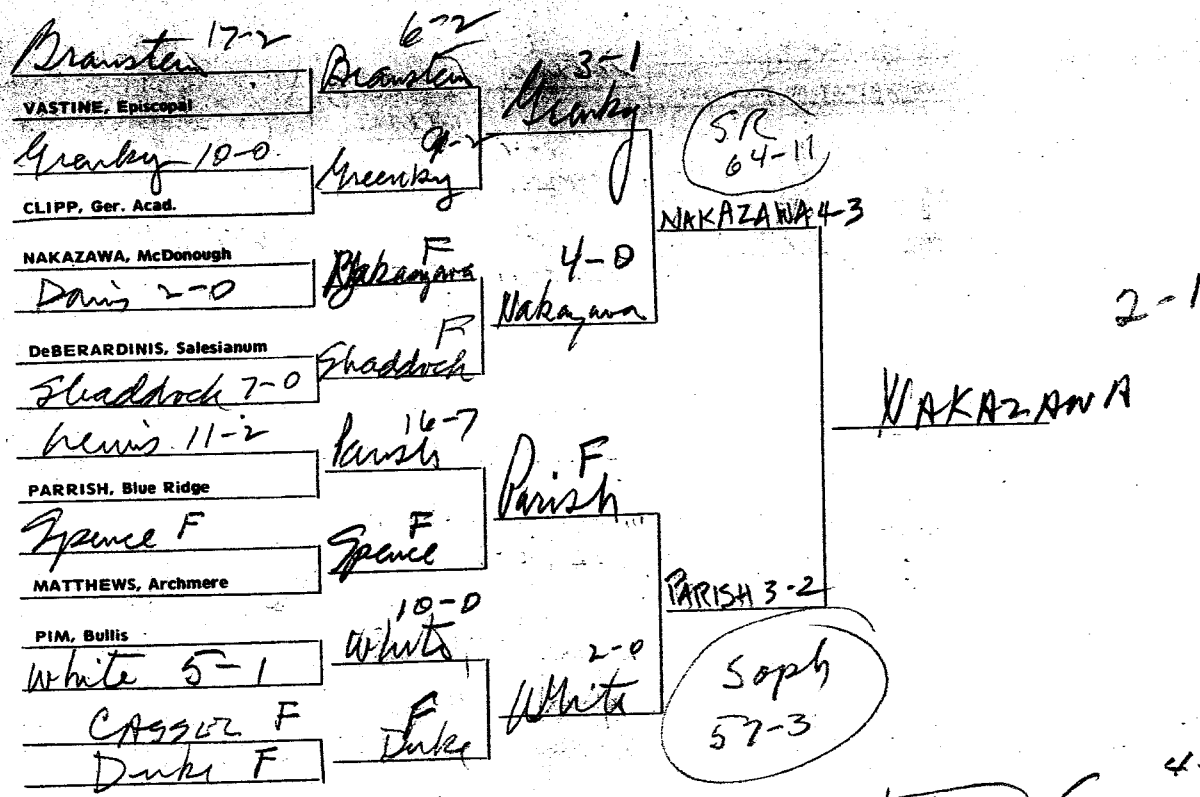 Branstein 17-2
VASTINE, Episcopal
Greenky 10-0
CLIPP, Ger. Acad.
NAKAZAWA, McDonough
Davis 2-0
DeBERARDINIS, Salesianum
Shaddock 7-0
Lewis 11-2
PARRISH, Blue Ridge
Spence F
MATTHEWS, Archmere
PIM, Bullis
White 5-1
CAGGEZ F
Duke F
6-2
Branstein
9-2
Greenky
F
Nakazawa
F
Shaddock
16-7
Parish
F
Spence
10-0
White
F
Duke
3-1
Greenky
4-0
Nakazawa
F
Parish
2-0
White
SR
64-11
NAKAZAWA 4-3
PARISH 3-2
Soph
57-3
2-1
NAKAZAWA